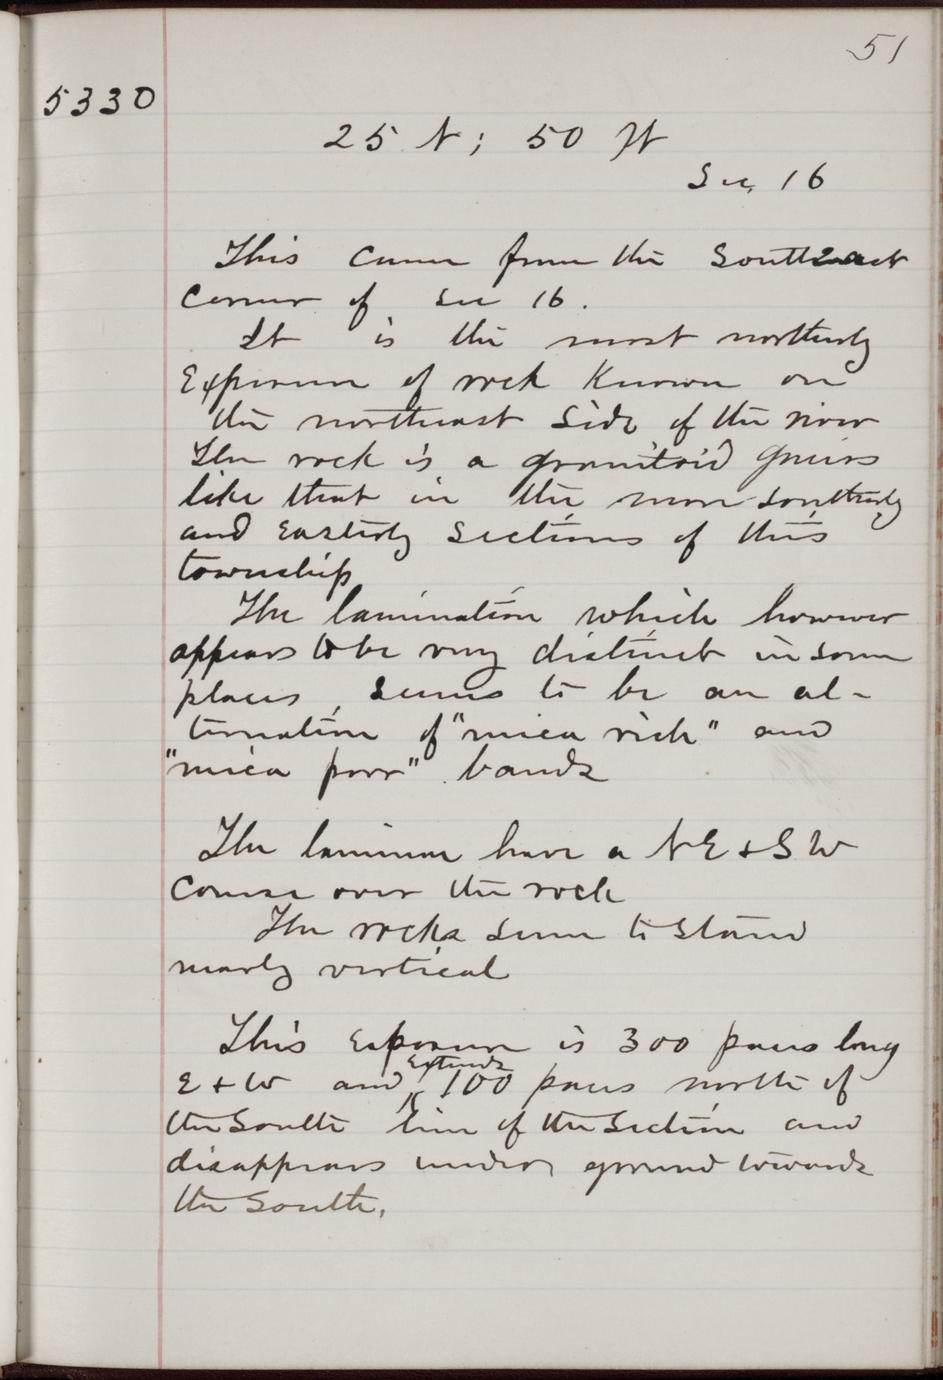 51
5330
25 N; 50 W
Sec. 16
This came from the Southeast
corner of Sec 16.
It is the most northerly
Exposure of rock known on
the northeast side of the river
The rock is a granitoid gneiss
like that in the more southerly
and easterly sections of this
township
The lamination which however
appears to be very distinct in some
places, seems to be an al-
ternation of "mica rich" and
"mica poor" bands
The laminae have a NE & SW
course over the rock
The rocks seem to stand
nearly vertical
This Exposure is 300 paces long
E & W and extends 100 paces north of
the South line of the Section and
disappears under ground towards
the South.